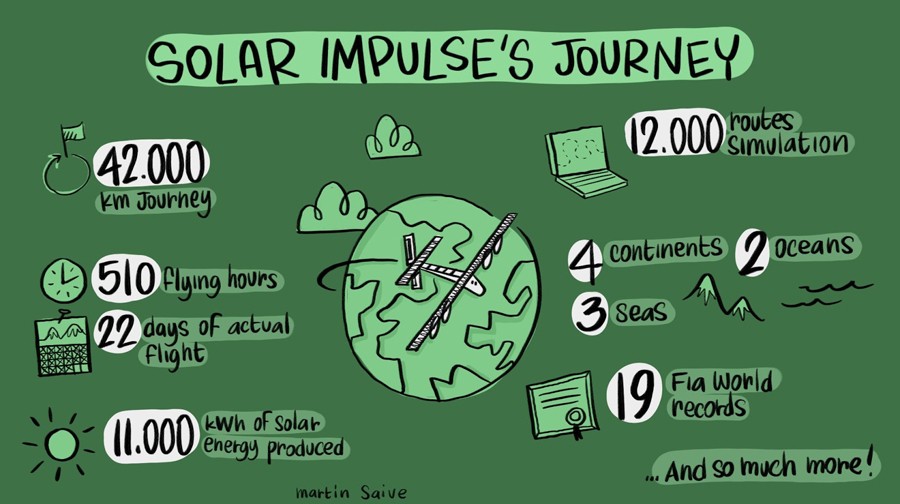 SOLAR IMPULSE'S JOURNEY
42.000
km Journey
510 flying hours
22 days of actual
flight
11.000 kWh of solar
energy produced
12.000 routes
simulation
4 continents 2 oceans
3 seas
19 Fia World
records
...And so much more!
martin Saive